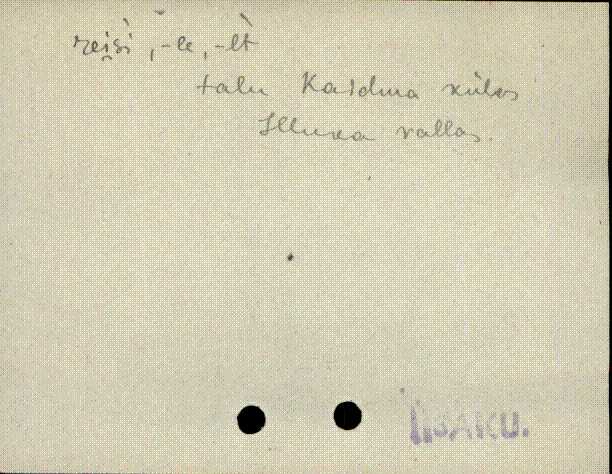 reiśi, -le, -lt
talu Kaidma külas
Illuka vallas.
IISAKU.